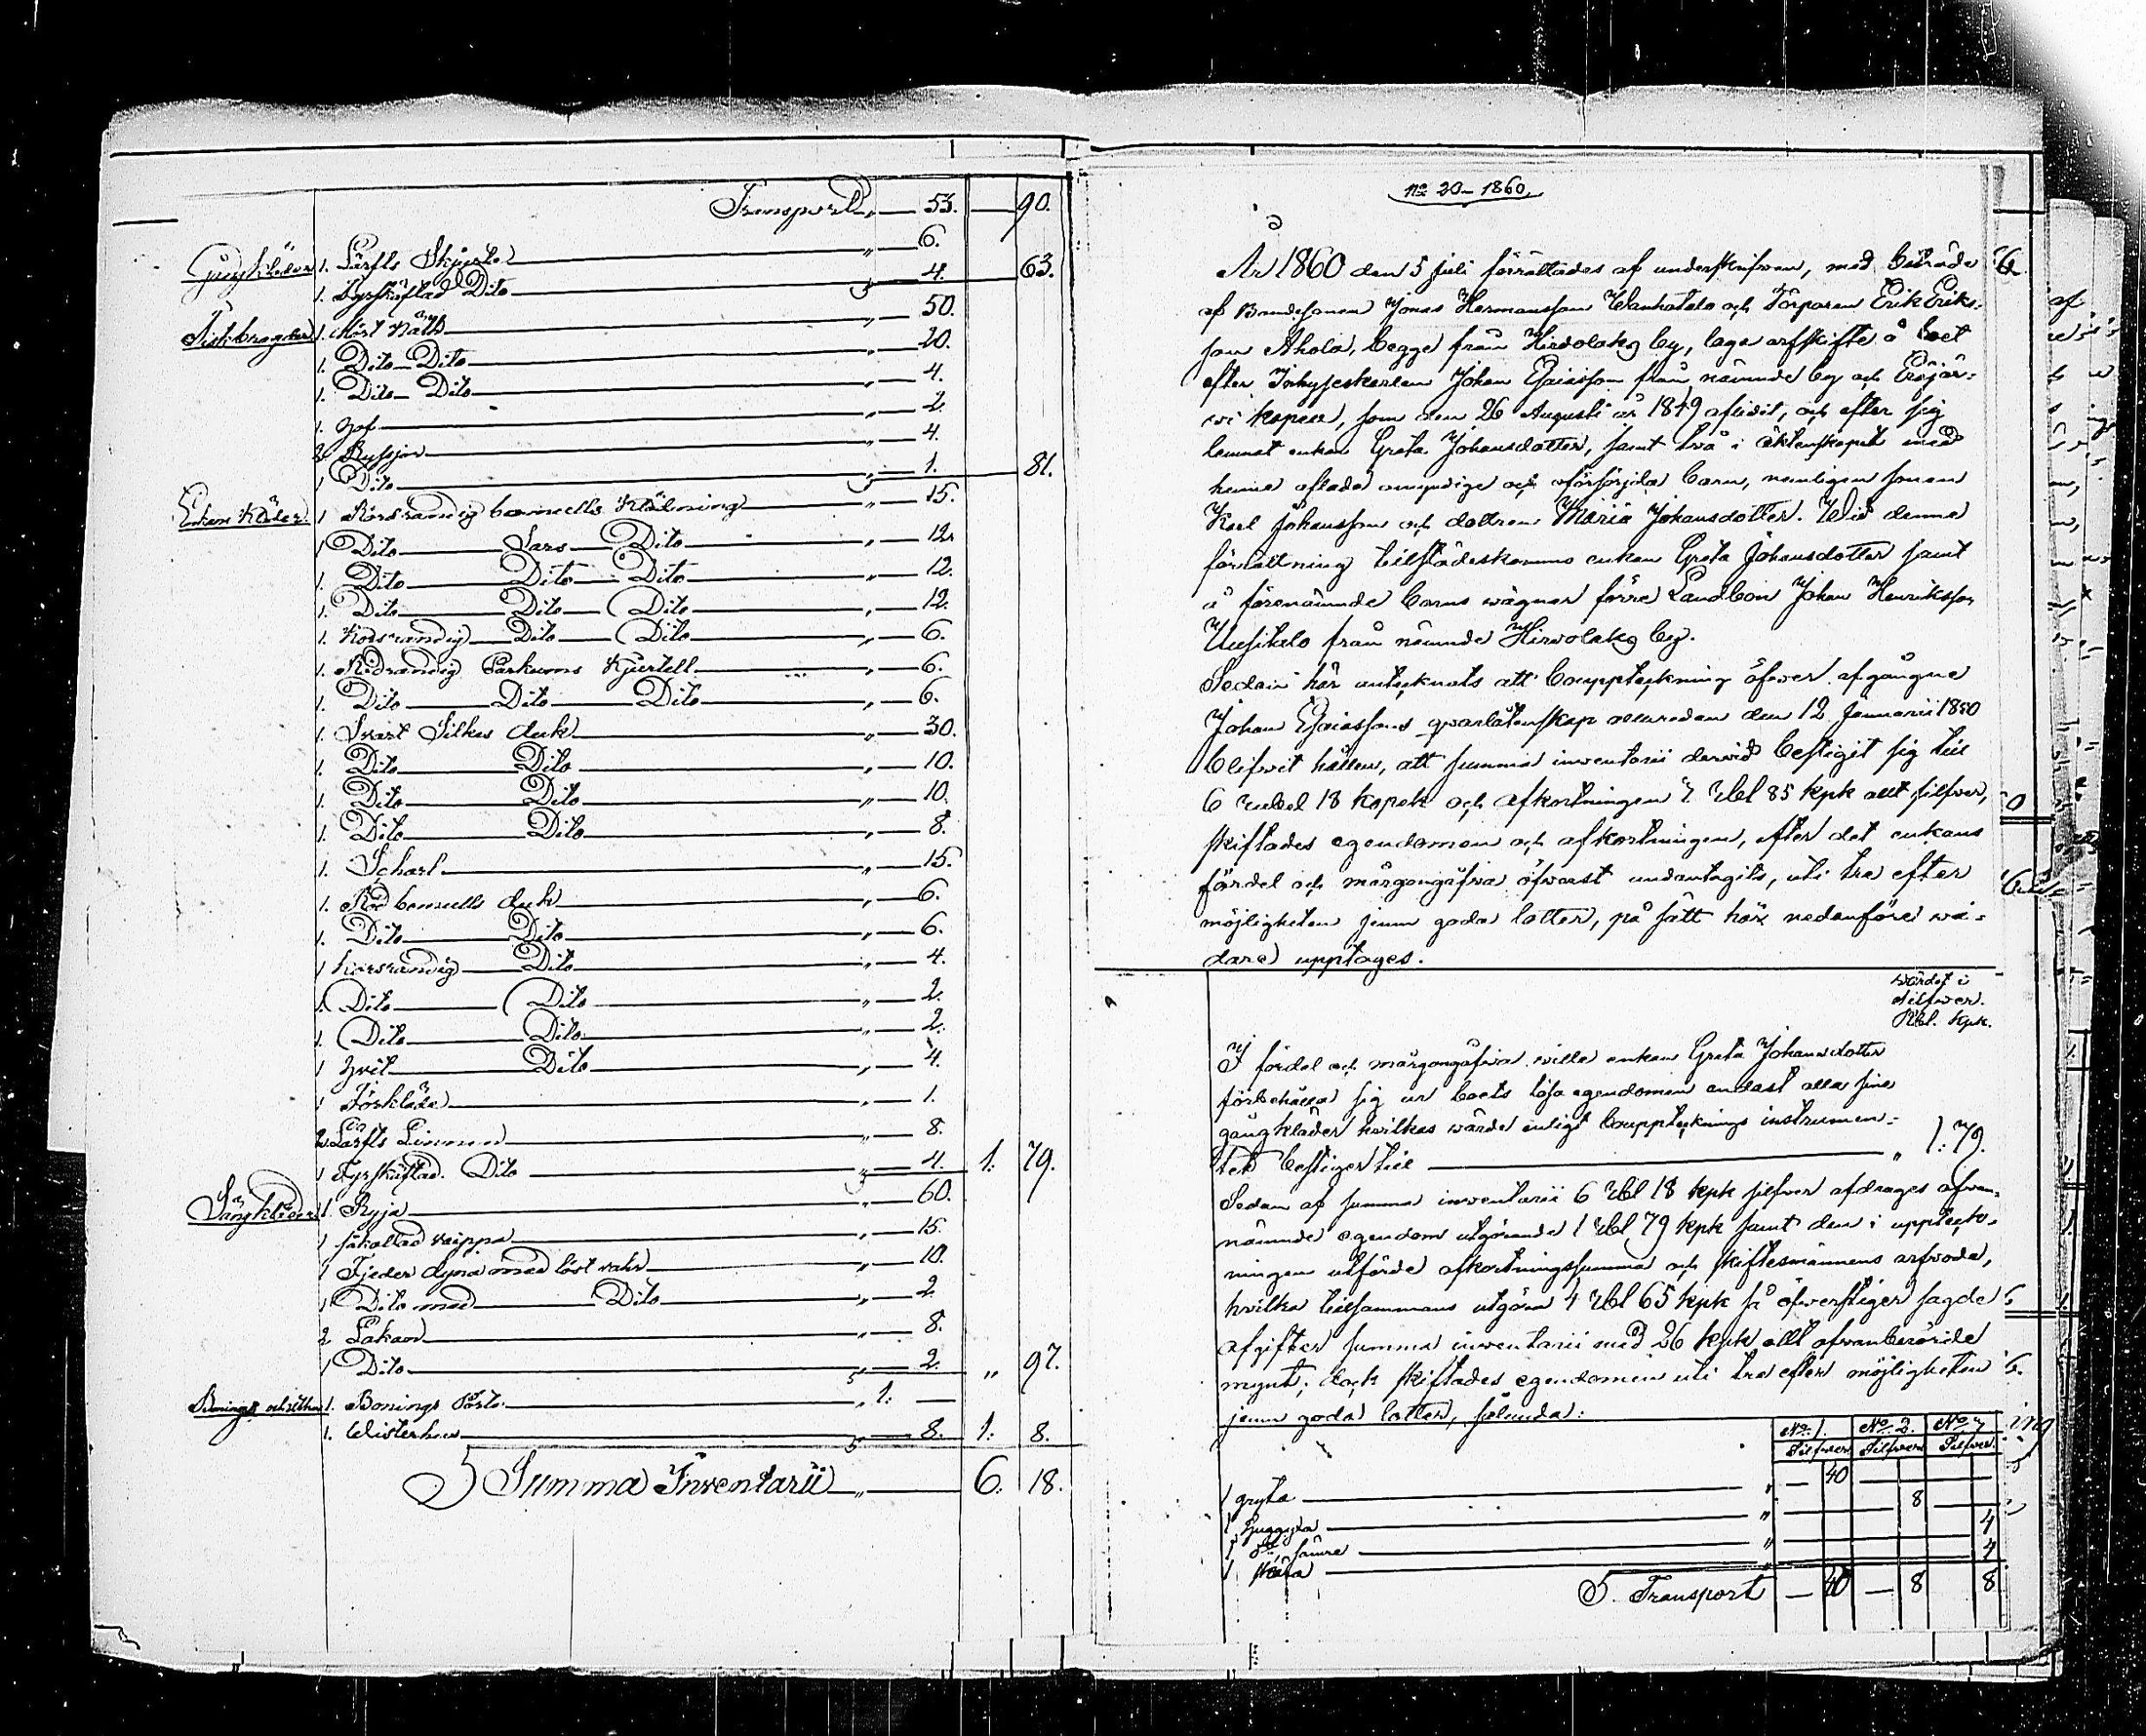 Transport „ — 53. — 90.
Gångkläder 1. Lärfts Skjorta „ — 6.
1. Fyrskäftad Dito „ — 4. 63.
Fiskbragder 1. Mört Nät „ — 50.
1. Dito Dito „ — 20.
1. Dito Dito „ — 4.
1. „ — 2.
2 Ryssjor „ — 4.
1 Dito „ — 1. 81.
Enkans Kläder. 1 Korsrandig bomulls Klädning „ — 15.
1 Dito Lars Dito „ — 12.
1. Dito Dito Dito „ — 12.
1. Dito Dito Dito „ — 12.
1. Korsrandig Dito Dito „ — 6.
1. Rödrandig Parkums Kjortell „ — 6.
1. Dito Dito Dito „ — 6.
1. Svart Silkes duk „ — 30.
1. Dito Dito „ — 10.
1. Dito Dito „ — 10.
1. Dito Dito „ — 8.
1. Scharl „ — 15.
1. Röd bomulls duk „ — 6.
1. Dito Dito „ — 6.
1 Korsrandig Dito „ — 4.
1. Dito Dito „ — 2.
1. Dito Dito „ — 2.
1 Hvit Dito „ — 4.
1 Förkläde „ — 1.
2 Lärfts Linnen „ — 8.
1 Fyrskäftad Dito „ — 4. 1: 79.
Sängkläder 1. Ryja „ — 60.
1 vaippa „ — 15.
1 Fjeder dyna med löst vahr „ — 10.
1 Dito med Dito „ — 2.
2 Lakan „ — 8.
1 Dito „ — 2. „ 97.
1. Bonings Pörte „ 1: —
1. Wisterhus „ — 8. 1: 8.
S Summa Inventarii „ — 6. 18.
No 20 – 1860.
År 1860 den 5 Juli förrättades af underskrifven, med biträde
af Bondesonen Jonas Hermansson Wanhatalo och Torparen Erik Eriks-
son Ahola, begge från Hirvolaks by, laga arfskifte å boet
efter Inhyseskarlen Johan Esaiasson från nämnde by och Evijär-
vi kapell, som den 26 Augusti år 1849 aflidit, och efter sig
lemnat enkan Greta Johansdotter, samt två i äktenskapet med
henne aflade omyndige och oförsörjda barn, nemligen sonen
Karl Johansson och dottren Maria Johansdotter. Wid denna
förrättning tillstädeskommo enkan Greta Johansdotter samt
å förenämnde barns wägnar förre Landbon Johan Henriksson
Uusitalo från nämnde Hirvolaks by.
Sedan här antecknats att bouppteckning öfver afgångne
Johan Esaiassons qvarlåtenskap allaredan den 12 Januarii 1850
blifvit hållen, att summa inventarii dervid bestigit sig till
6 rubel 18 kopek och afkortningen 2 Rbl 85 kpk allt silfver,
skiftades egendomen och afkortningen, efter det enkans
fördel och morgongåfva öfverst undantagits, uti tre efter
möjligheten jemn goda lotter, på sätt här nedanföre wi-
dare upptages.
Wärdet i
silfwer.
Rbl. Kpk.
I fördel och morgongåfva wille enkan Greta Johansdotter
förbehålla sig ur boets lösa egendomen endast alla sine
gångkläder hvilkas wärde enligt bouppteckings instrumen-
tet bestiger till „ 1: 79.
Sedan af summa inventarii 6 Rbl 18 kpk silfver afdrages ofvan-
nämnde egendom utgörande 1 Rbl 79 kpk samt den i uppteck-
ningen utförde afkortningssumma och skiftesmännens arfvode,
hvilka tillsammans utgöra 4 Rbl 65 kpk så öfverstiger sagde
afgifter summa inventarii med 26 kpk allt ofvanberörde
mynt; dock skiftades egendomen uti tre efter möjligheten
jemn goda lotter, sålunda:
No 1. No 2. No 3
Silfver Silfver Silfver.
1 gryta „ — 40
1 Huggyxa „ — 8
1 skära „ 4
1 skära „ 4
S. Transport — 40 — 8 8